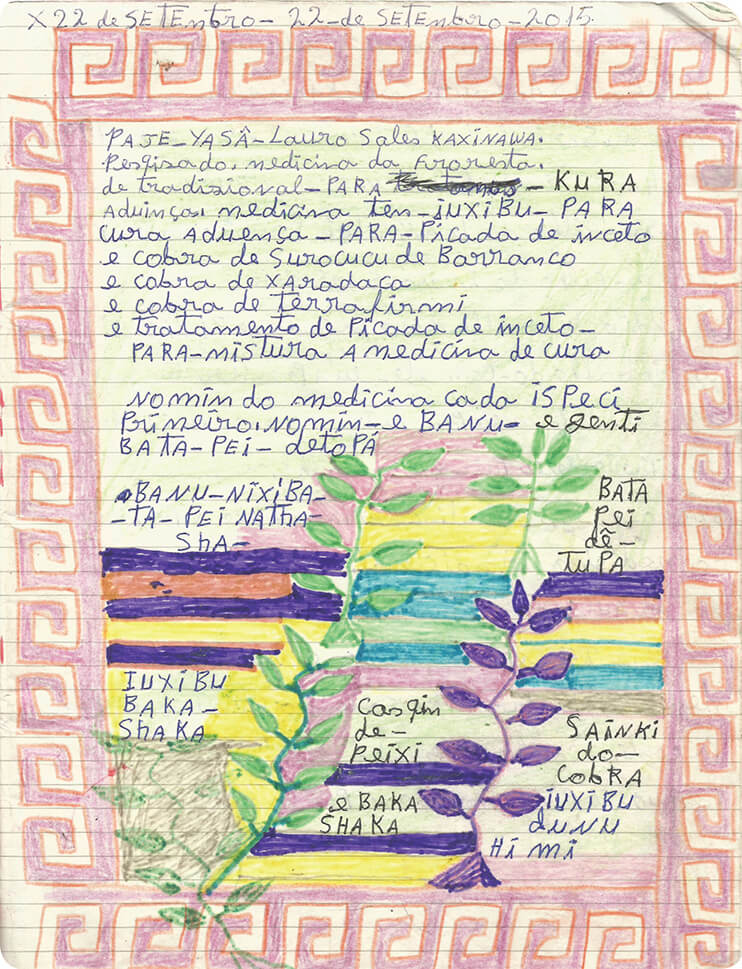 X 22 de SETEmbro - 22 - de SETEmbro - 2015.
PAJE - YASÂ - Lauro Sales KAXINAWA.
Pesqisado. medicina da Froresta.
de tradisional - PARA - KURA
Aduinças. medicina ten - iUXIBU - PARA
cura Aduença - PARA - Picada de inceto
e cobra de Surocucu de Barranco
e cobra de XARadaca
e cobra de terrafirmi
e tratamento de Picada de inceto -
PARA - mistura A medicina de cura
Nomin do medicina cada iSPeci
Primeiro. Nomin - e BANU - e genti
BATA - PEI - detoPÁ
BANU - NIXIBA -
- TA - PEI NATHA -
ShA -
BATA
Pei
dê -
TUPA
IUXIBU
BAKA -
ShAKA
Casqin
de -
Peixi
e BAKA
SHAKA
SAINKI
do -
CoBRA
iUXIBU
dUNU
Hi mi